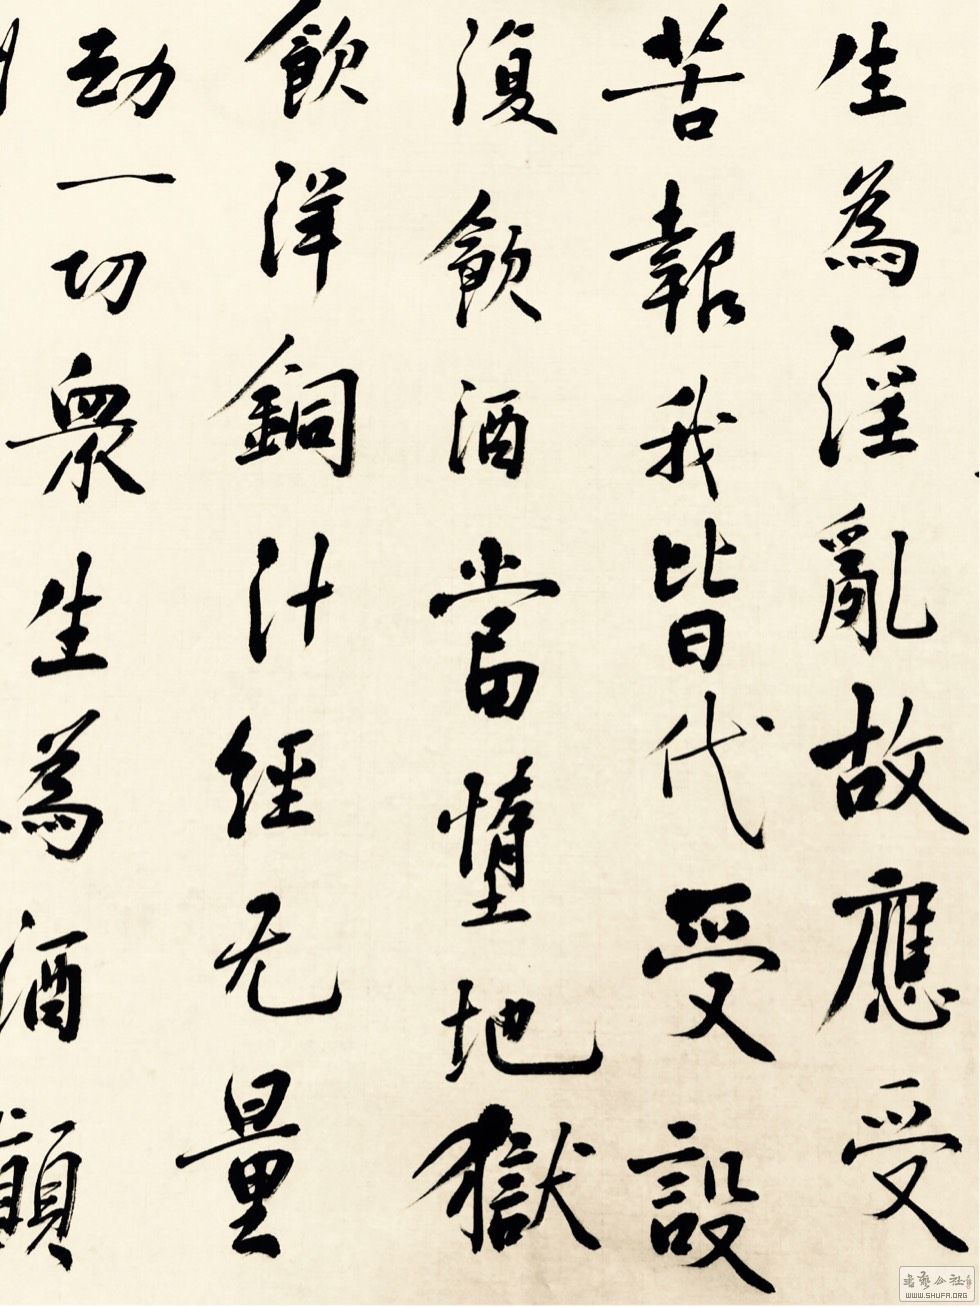 生為淫亂故應受
苦報我皆代受設
復飲酒當墮地獄
飲洋銅汁經无量
劫一切眾生為酒顛
WWW.SHUFA.ORG